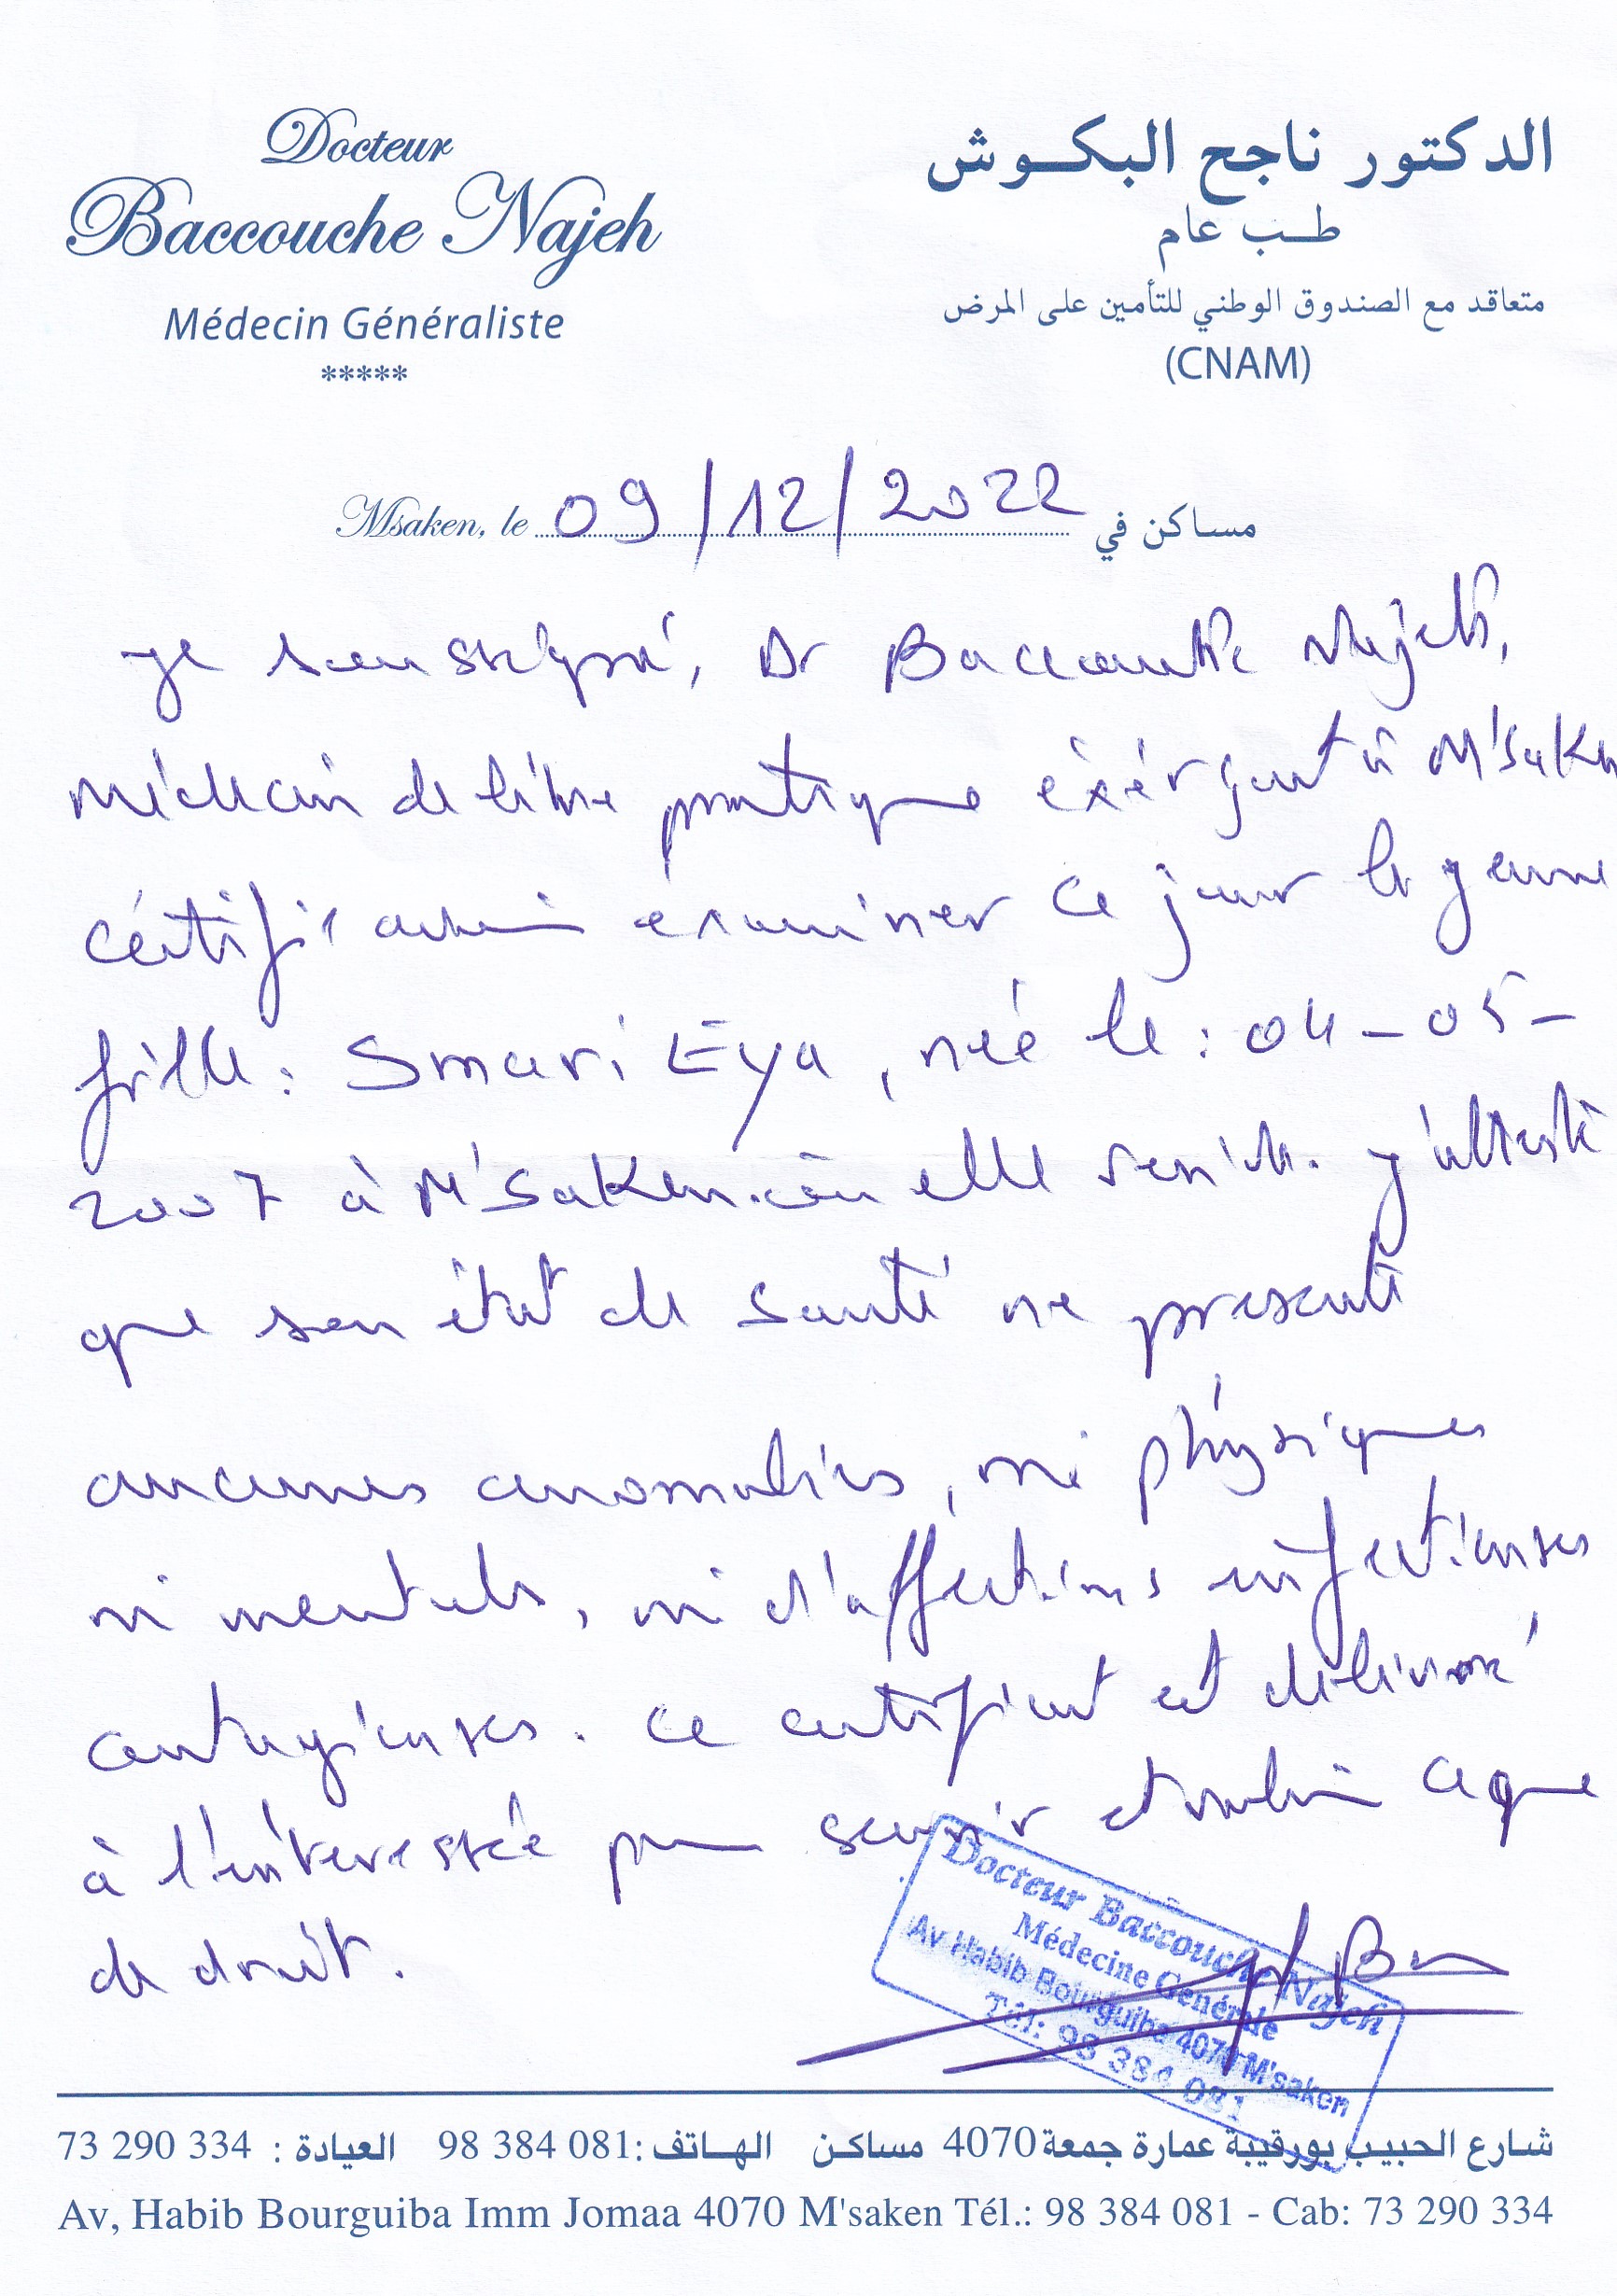 Docteur
Baccouche Najeh
Médecin Généraliste
*****
الدكتور ناجح البكوش
طب عام
متعاقد مع الصندوق الوطني للتأمين على المرض
(CNAM)
Msaken, le 09/12/2022 مساكن في
je soussigné, Dr Baccouche Najeh,
médecin de libre pratique éxérçant à M'saken
cértifie avoir examiner ce jour la jeune
fille : Smari Eya, née le : 04-05-
2007 à M'saken où elle réside. j'atteste
que son état de santé ne présente
aucunes anomalies, ni physiques
ni mentals, ni d'affections infectieuses
contagieuses. ce certificat est délivré
à l'intéressée pour servir et valoir ce que
de droit.
Docteur Baccouche Najeh
Médecine Genérale
Av Habib Bourguiba 4070 M'saken
Tél: 98 384 081
شارع الحبيب بورقيبة عمارة جمعة 4070 مساكن الهاتف: 98 384 081 العيادة : 73 290 334
Av, Habib Bourguiba Imm Jomaa 4070 M'saken Tél.: 98 384 081 - Cab: 73 290 334